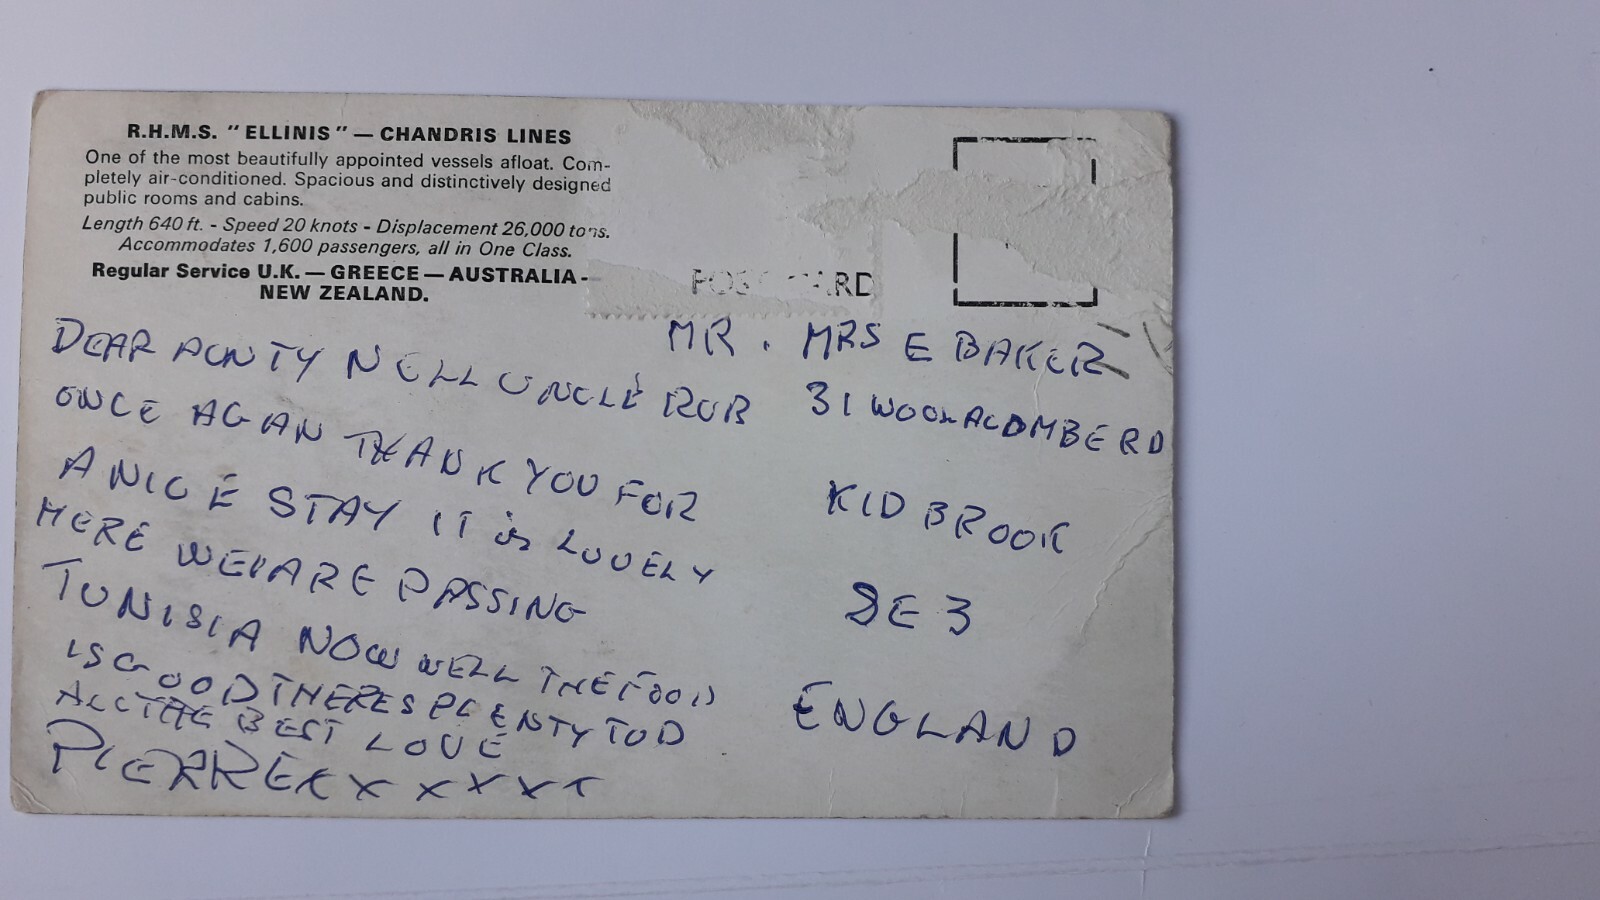 R.H.M.S. "ELLINIS" — CHANDRIS LINES
One of the most beautifully appointed vessels afloat. Com-
pletely air-conditioned. Spacious and distinctively designed
public rooms and cabins.
Length 640 ft. - Speed 20 knots - Displacement 26,000 tons.
Accommodates 1,600 passengers, all in One Class.
Regular Service U.K. — GREECE — AUSTRALIA -
NEW ZEALAND.
POST CARD
DEAR AUNTY NELL UNCLE ROB
ONCE AGAN THANK YOU FOR
A NICE STAY IT is LOVELY
HERE WE ARE PASSING
TUNISIA NOW WELL THE FOOD
IS GOOD THERES PLENTY TO D
ALL THE BEST LOVE
PIERRE X X X X X X
MR. MRS E BAKER
31 WOOLACOMBE RD
KIDBROOK
SE 3
ENGLAND